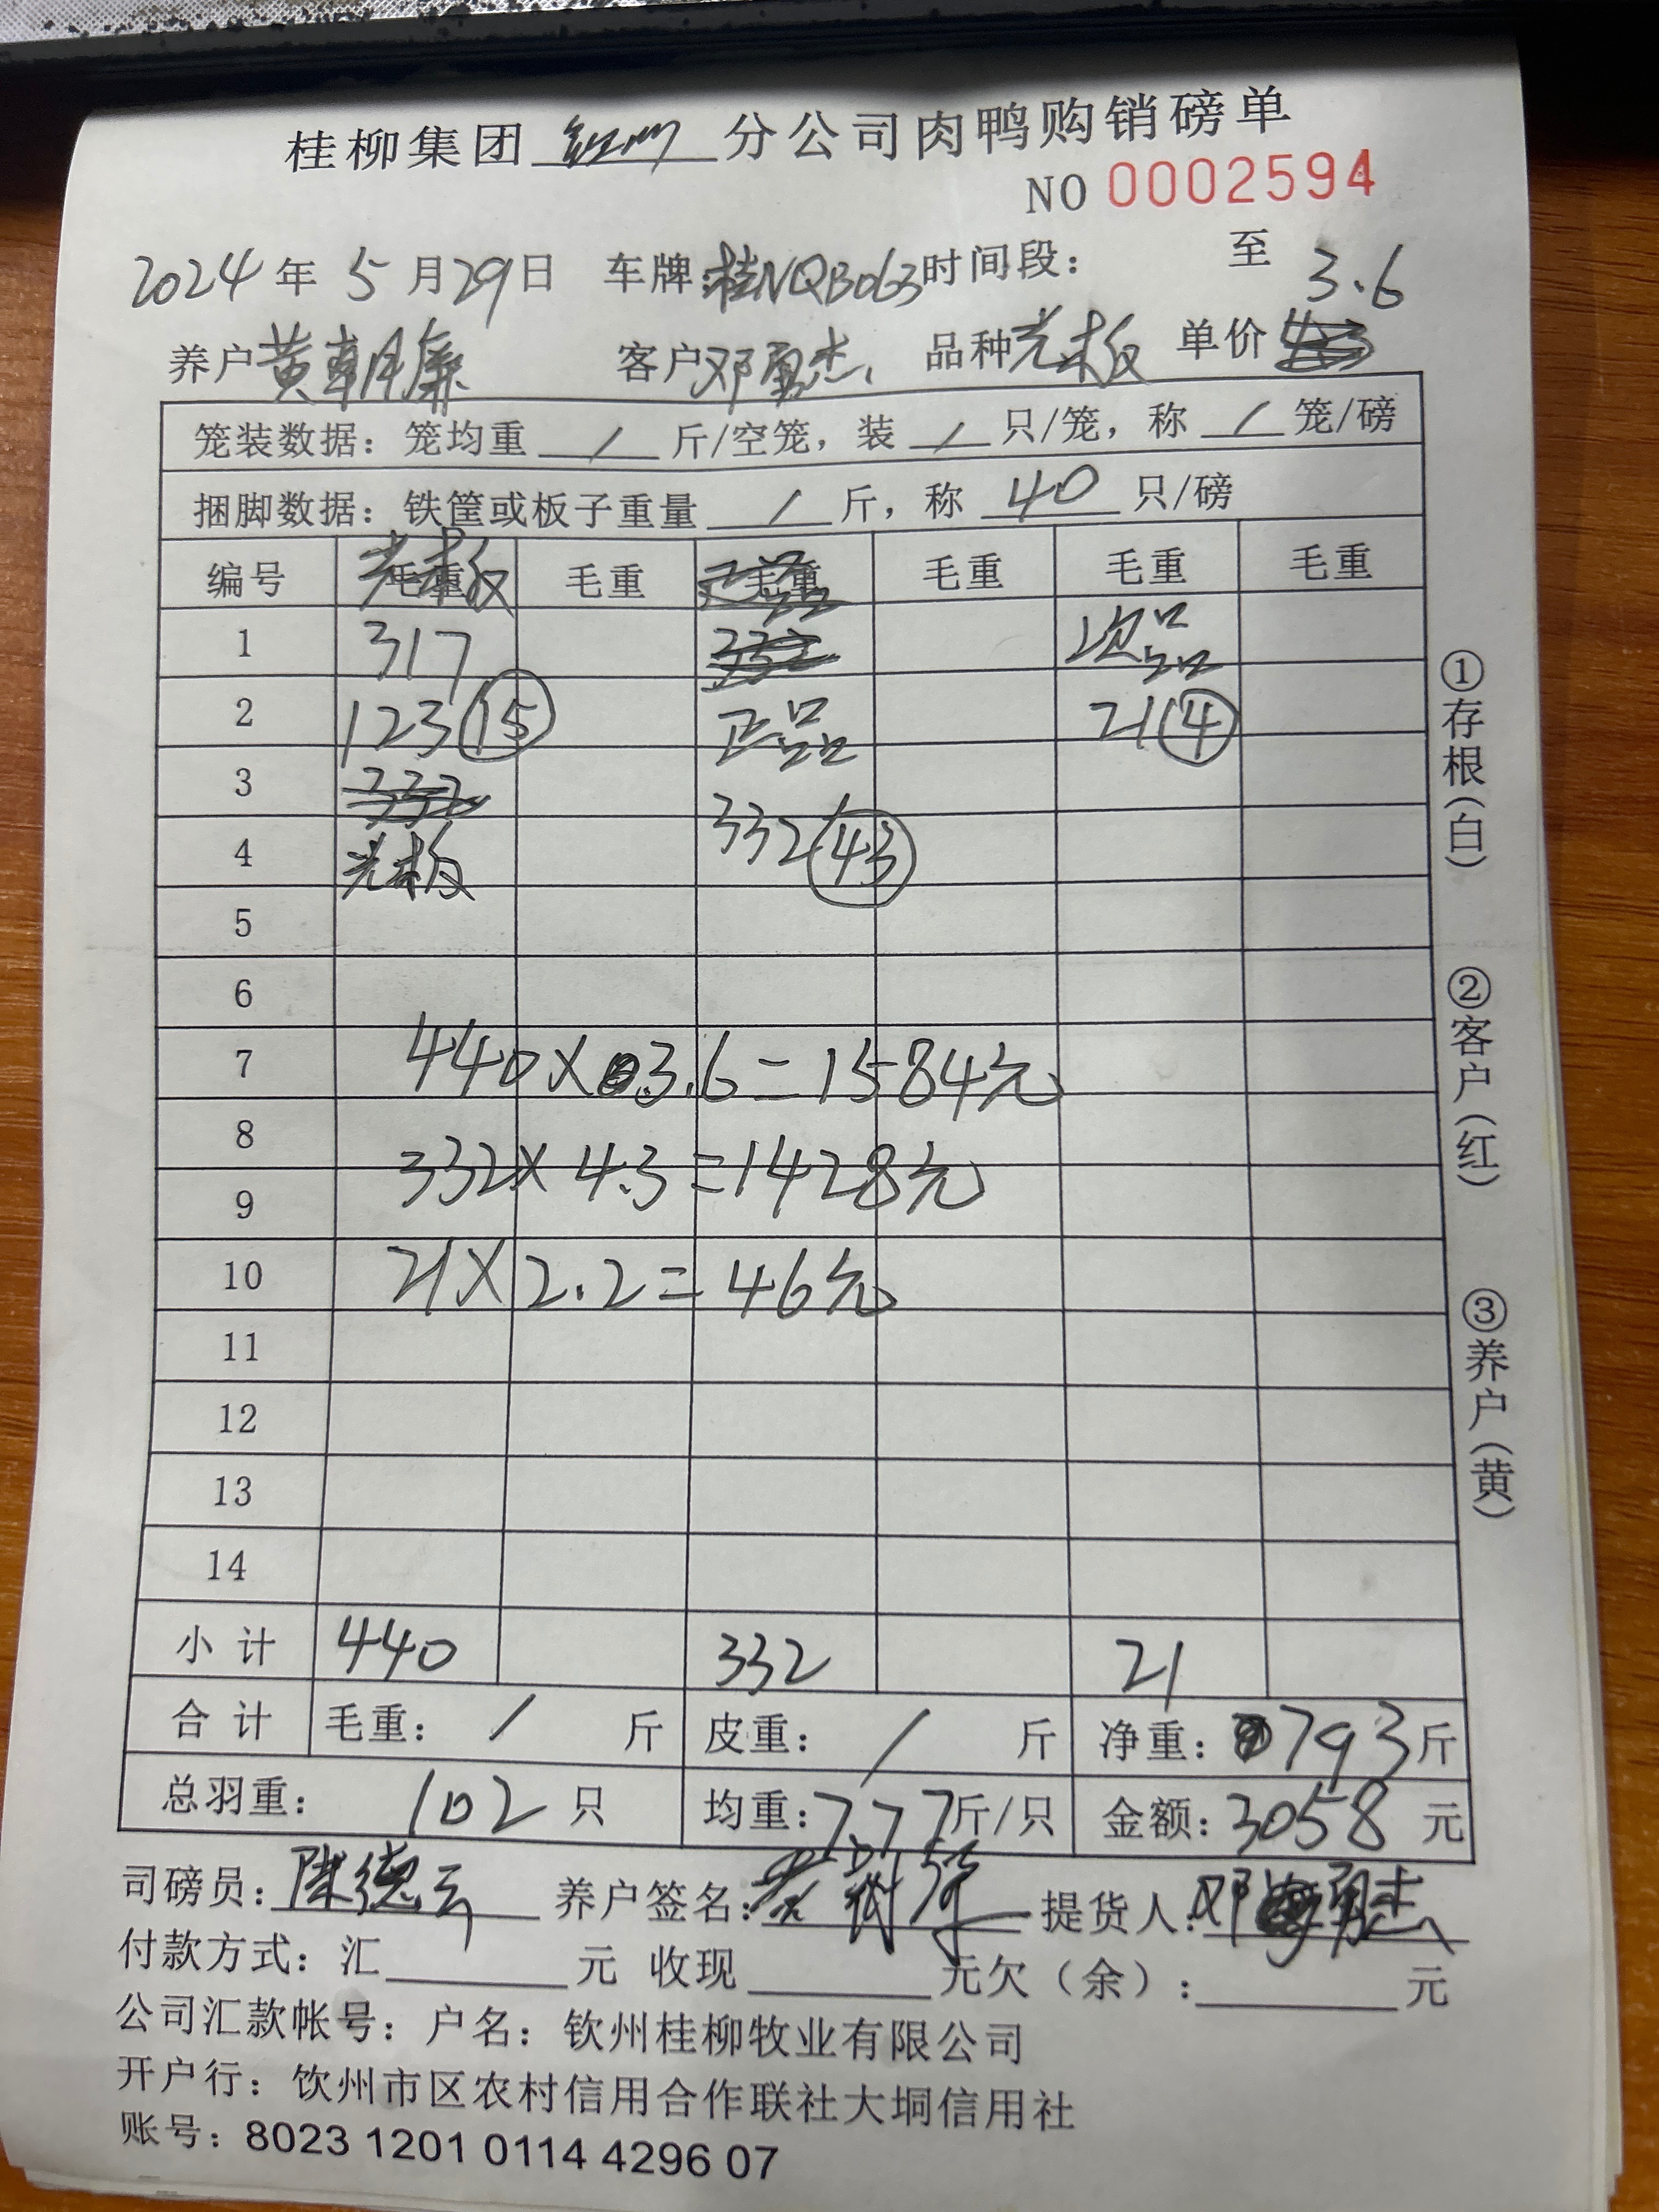 桂柳集团 钦州 分公司肉鸭购销磅单
NO 0002594
2024年 5月29日 车牌:桂NQB063 时间段: 至
3.6
养户 黄朝廉 客户 邓勇杰 品种 光板 单价
笼装数据:笼均重 / 斤/空笼,装 / 只/笼,称 / 笼/磅
捆脚数据:铁筐或板子重量 / 斤,称 40 只/磅
编号 毛重 毛重 毛重 毛重 毛重 毛重
光板 正品
1 317 332 次品
2 123 15 正品 21 4
3 332
4 光板 332 43
5
6
7 440×3.6=1584元
8
332×4.3=1428元
9
10 21×2.2=46元
11
12
13
14
小计 440 332 21
合计 毛重: / 斤 皮重: / 斤 净重: 793斤
总羽重: 102 只 均重:7.77斤/只 金额:3058 元
司磅员:陈德云 养户签名: 提货人:邓勇杰
付款方式:汇 元 收现 元欠(余): 元
公司汇款帐号:户名:钦州桂柳牧业有限公司
开户行:钦州市区农村信用合作联社大垌信用社
账号:8023 1201 0114 4296 07
①存根(白)
②客户(红)
③养户(黄)